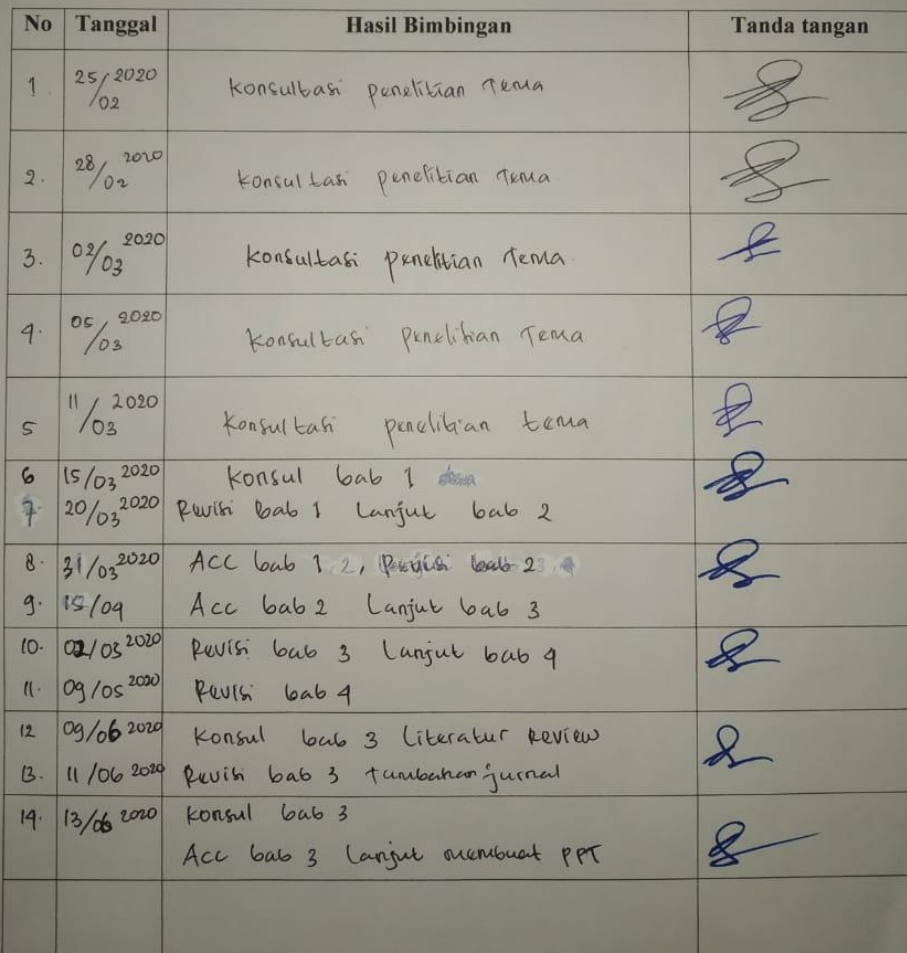 No Tanggal Hasil Bimbingan Tanda tangan
1 25/02 2020 Konsultasi penelitian Tema
2. 28/02 2020 Konsultasi penelitian Tema
3. 02/03 2020 Konsultasi penelitian Tema.
4. 05/03 2020 Konsultasi penelitian Tema
5 11/03 2020 Konsultasi penelitian tema
6 15/03 2020 Konsul bab 1
7. 20/03 2020 Revisi Bab 1 Lanjut bab 2
8. 31/03 2020 ACC bab 1 2, Revisi bab 2 3
9. 15/04 Acc bab 2 Lanjut bab 3
10. 02/05 2020 Revisi bab 3 Lanjut bab 4
11. 09/05 2020 Revisi bab 4
12 09/06 2020 Konsul bab 3 Literatur Review
13. 11/06 2020 Revisi bab 3 tambahan jurnal
14. 13/06 2020 Konsul bab 3
Acc bab 3 Lanjut membuat PPT